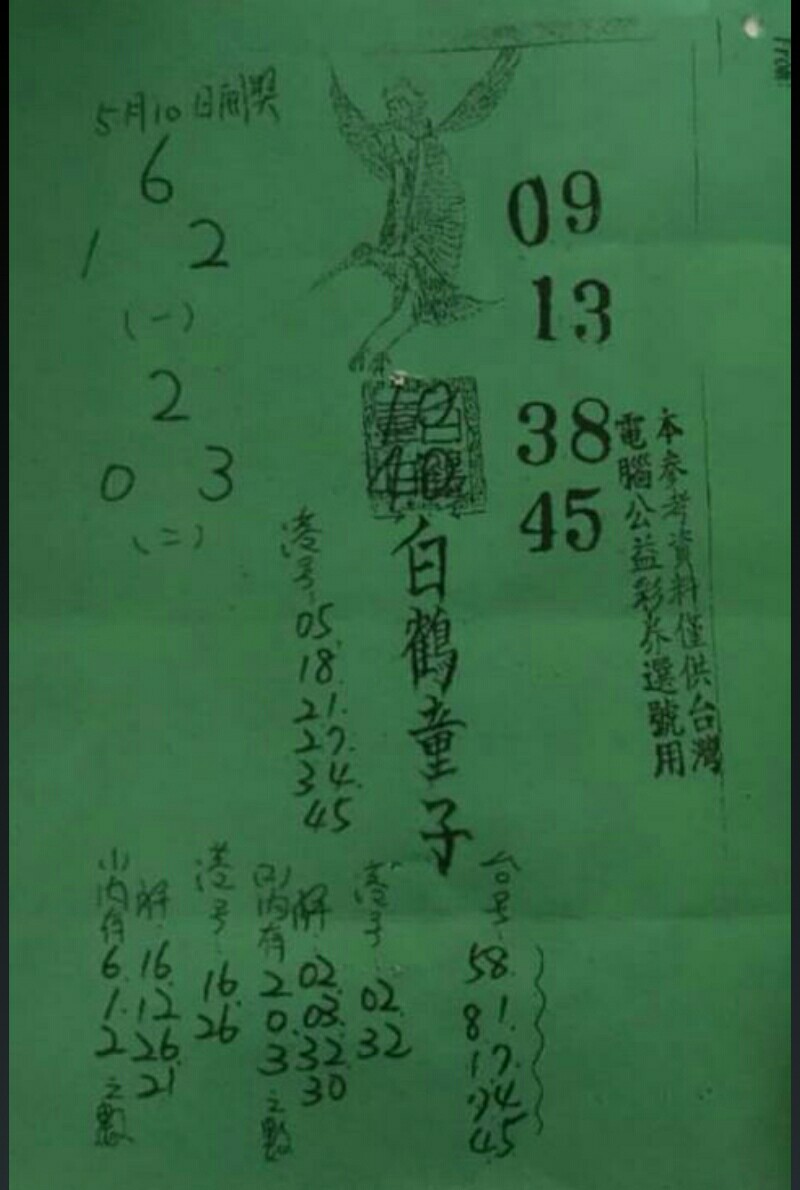 5月10日開獎
6
1 2
(一)
2
0 3
(二)
09
13
38
45
本參考資料僅供台灣
電腦公益彩券選號用
10
40
白鶴童子
港号
05.
18.
21.
27.
34.
45
(1)內存
6.
1.
2
之數
解.
16.
12
26.
21
港号.
16.
26
(2)內存
2
0.
3
之數
解.
02.
03.
32
30
港号.
02
32
台号.
58.
81.
17.
74
45